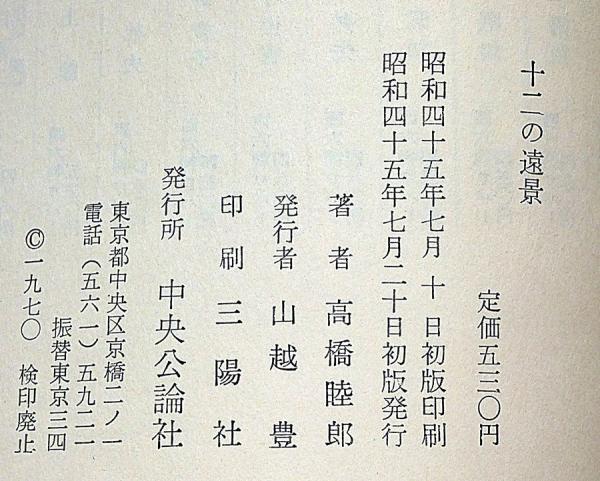 十二の遠景
定価五三〇円
昭和四十五年七月 十 日初版印刷
昭和四十五年七月二十日初版発行
著者 高橋睦郎
発行者 山越 豊
印刷 三陽社
発行所 中央公論社
東京都中央区京橋二ノ一
電話(五六一)五九二一
振替東京三四
©一九七〇 検印廃止